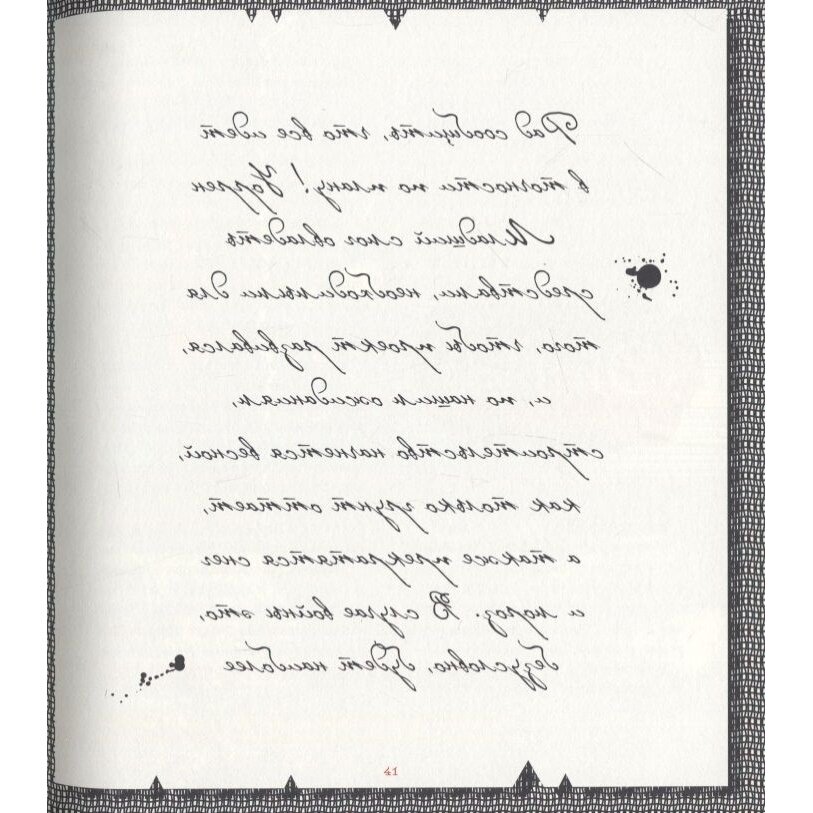 Рад сообщить, что все идет
в точности по плану! Уоррен
Младший смог овладеть
средствами, необходимыми для
того, чтобы проект развивался,
и, по нашим ожиданиям,
строительство начнется весной,
как только грунт оттает,
а также прекратятся снег
и мороз. В случае войны это,
безусловно, будет наиболее
41